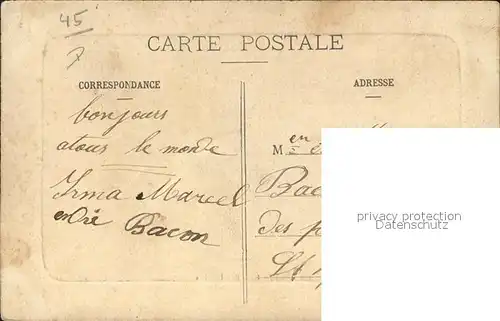 45
7
CARTE POSTALE
CORRESPONDANCE
ADRESSE
bonjours
atous le monde
Irma Marcel
endré Bacon
M en
Bac
des p
St
privacy protection
Datenschutz